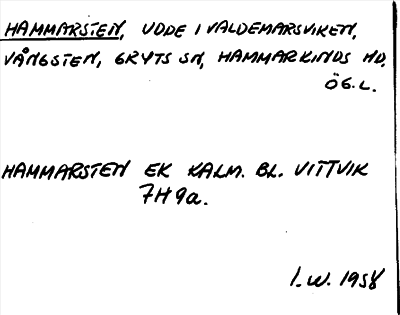 HAMMARSTEN, UDDE I VALDEMARSVIKEN,
VÅNGSTEN, GRYTS SN, HAMMARKINDS HD,
ÖG.L.
HAMMARSTEN EK KALM. BL. VITTVIK
7H9a.
I.W. 1958